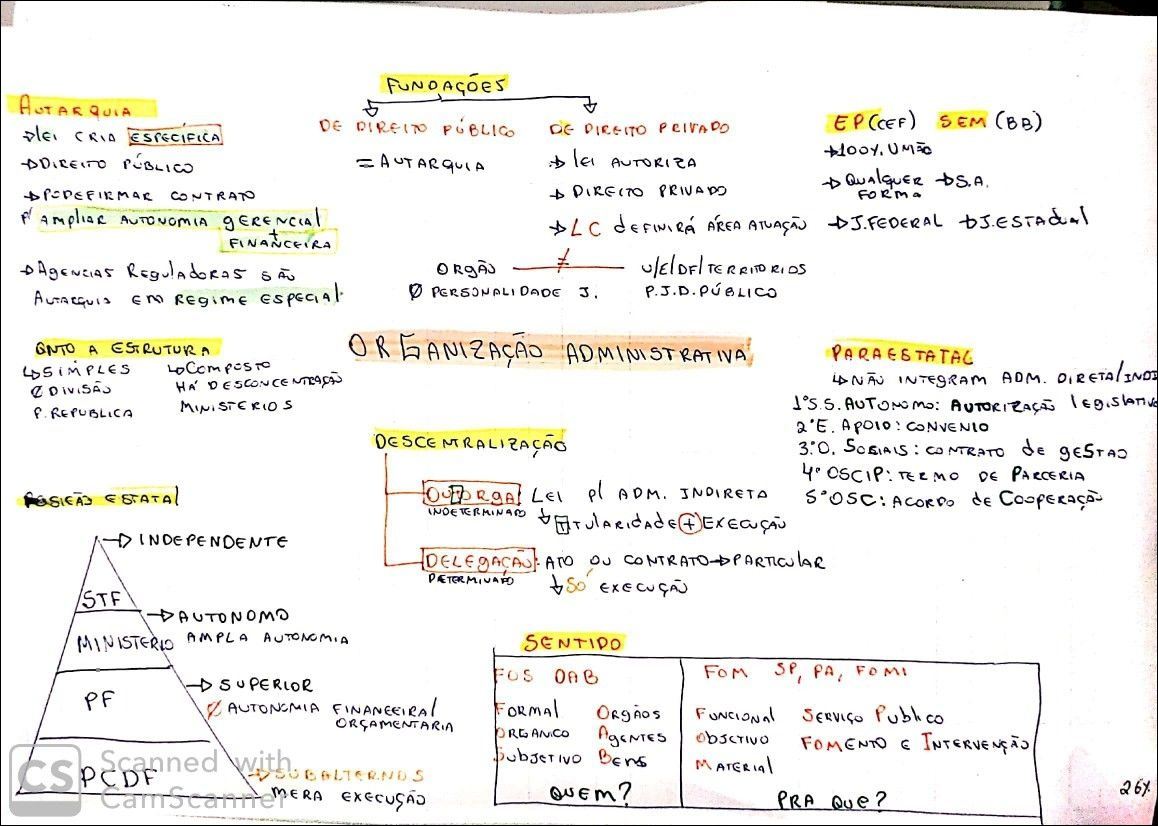 AUTARQUIA
→ lei CRIA ESPECÍFICA
→ DIREITO PÚBLICO
→ PODE FIRMAR CONTRATO
P/ AMPLIAR AUTONOMIA gERENCIAl
+
FINANCEIRA
→ AgENCIAS REgulAdORAS SÃO
AUTARQUIS EM REgIME ESPECIAl
FUNDAÇÕES
DE DIREITO PÚBLICO
= AUTARQUIA
DE DIREITO PRIVADO
→ lEI AUTORIZA
→ DIREITO PRIVADO
→ LC dEFINIRÁ ÁREA ATUAÇÃO
ORgÃO ≠ U/E/DF/TERRITORIOS
Ø PERSONALIDADE J. P.J.D.PÚBLICO
EP (CEF) SEM (BB)
→ 100% UNIÃO
→ QUAlquER → S.A.
FORMA
→ J.FEDERAL → J.ESTAduAl
QNTO A ESTRUTURA
↳ SIMPLES ↳ COMPOSTO
Ø DIVISÃO HÁ DESCONCENTRAÇÃO
P. REPUBLICA MINISTERIOS
ORGANIZAÇÃO ADMINISTRATIVA
PARAESTATAL
↳ NÃO INTEGRAM ADM. DIRETA/INDI
1º S.S. AUTONOMO: AUTORIZAÇÃO lEgISlATIV
2º E. APOIO: CONVENIO
3º O. SOCIAIS: CONTRATO dE gESTAO
4º OSCIP: TERMO DE PARCERIA
5º OSC: ACORDO dE COOPERAÇÃO
DESCENTRALIZAÇÃO
OUTORGA LEI P/ ADM. INDIRETA
INDETERMINADO
↳ TITULARIDADE + EXECUÇÃO
DELEGAÇÃO: ATO OU CONTRATO → PARTICULAR
DETERMINADO
↳ SÓ EXECUÇÃO
POSIÇÃO ESTATAl
→ INDEPENDENTE
STF
→ AUTONOMO
MINISTERIO AMPLA AUTONOMIA
→ SUPERIOR
PF
Ø AUTONOMIA FINANCEIRA/
ORÇAMENTARIA
PCDF
→ SUBALTERNOS
MERA EXECUÇÃO
SENTIDO
FOS OAB
FORMAL ORgÃOS
ORGANICO AgENTES
SUBJETIVO BENS
QUEM?
FOM SP, PA, FOMI
FUNCIONAL SERVIÇO PUBLICO
OBJETIVO FOMENTO E INTERVENÇÃO
MATERIAL
PRA QUE?
CS Scanned with
CamScanner